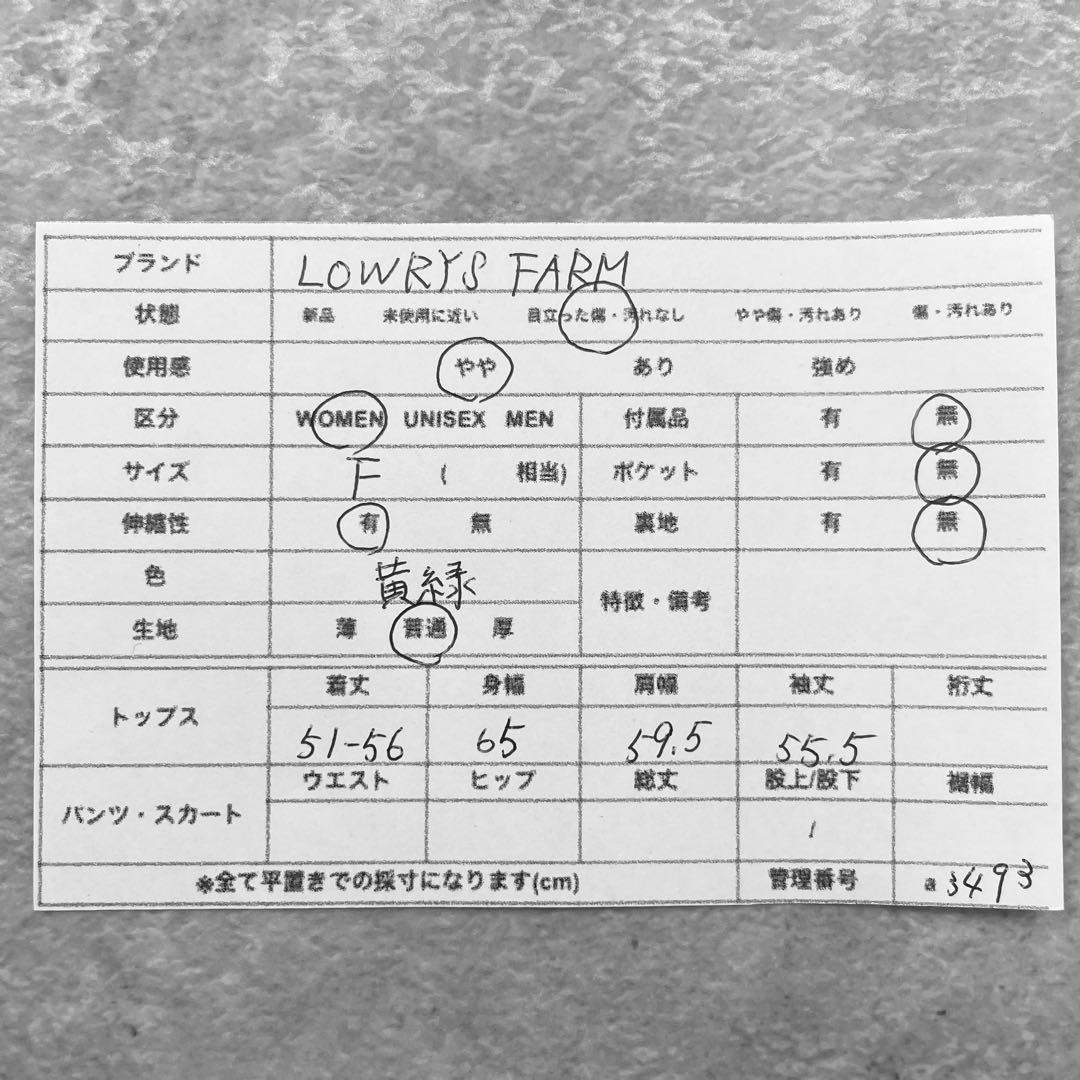 ブランド LOWRYS FARM
状態 新品 未使用に近い 目立った傷・汚れなし やや傷・汚れあり 傷・汚れあり
使用感 やや あり 強め
区分 WOMEN UNISEX MEN 付属品 有 無
サイズ F ( 相当) ポケット 有 無
伸縮性 有 無 裏地 有 無
色 黄緑 特徴・備考
生地 薄 普通 厚
トップス 着丈 身幅 肩幅 袖丈 裄丈
51-56 65 59.5 55.5
パンツ・スカート ウエスト ヒップ 総丈 股上/股下 裾幅
/
※全て平置きでの採寸になります(cm) 管理番号 a 3493